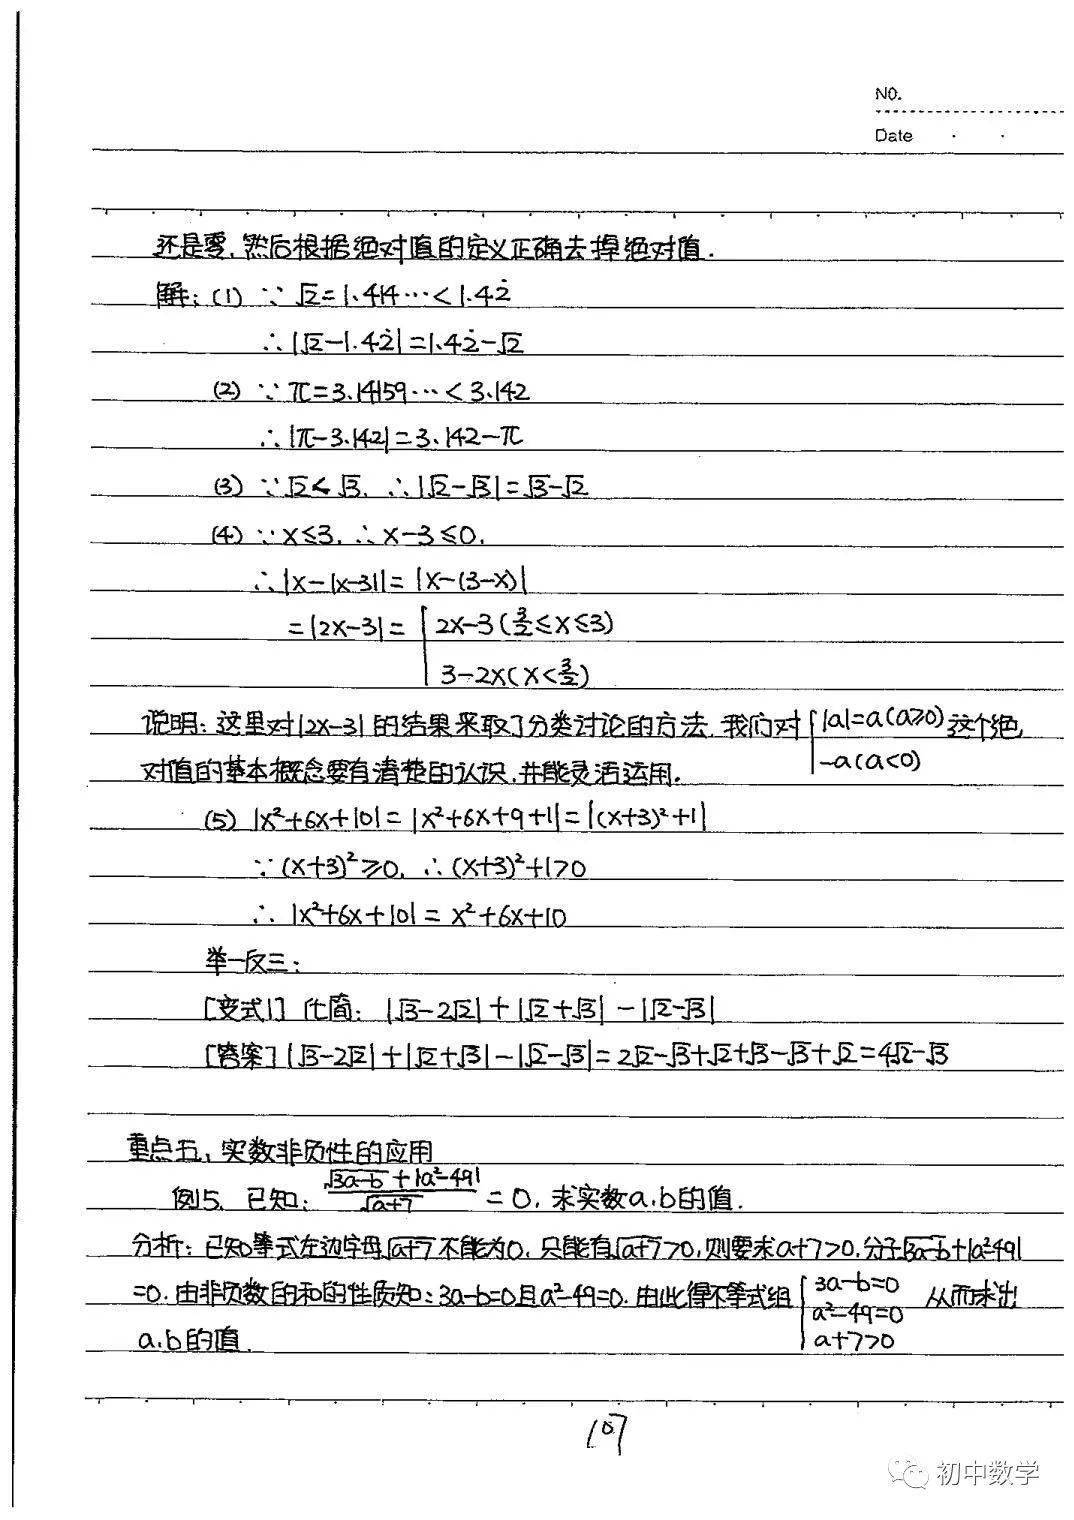 NO.
Date . .
还是零，然后根据绝对值的定义正确去掉绝对值.
解：(1) ∵ √2=1.414…<1.42̇
∴|√2-1.42̇|=1.42̇-√2
(2) ∵ π=3.14159…<3.142
∴|π-3.142|=3.142-π
(3) ∵√2<√3, ∴|√2-√3|=√3-√2
(4) ∵x≤3, ∴x-3≤0,
∴|x-|x-3||=|x-(3-x)|
=|2x-3|={2x-3(3/2≤x≤3)
3-2x(x<3/2)
说明：这里对|2x-3|的结果采取了分类讨论的方法，我们对{|a|=a(a≥0)这个绝
-a(a<0)
对值的基本概念要有清楚的认识，并能灵活运用.
(5) |x²+6x+10|=|x²+6x+9+1|=|(x+3)²+1|
∵(x+3)²≥0, ∴(x+3)²+1>0
∴ |x²+6x+10|=x²+6x+10
举一反三：
[变式1] 化简：|√3-2√2|+|√2+√3|-|√2-√3|
[答案]|√3-2√2|+|√2+√3|-|√2-√3|=2√2-√3+√2+√3-√3+√2=4√2-√3
重点五，实数非负性的应用
例5、已知：(√(3a-b)+|a²-49|)/√(a+7)=0，求实数a.b的值.
分析：已知等式左边字母√(a+7)不能为0，只能有√(a+7)>0,则要求a+7>0,分子√(3a-b)+|a²-49|
=0.由非负数的和的性质知：3a-b=0且a²-49=0.由此得不等式组{3a-b=0
a²-49=0 从而求出
a+7>0
a.b的值.
107
初中数学